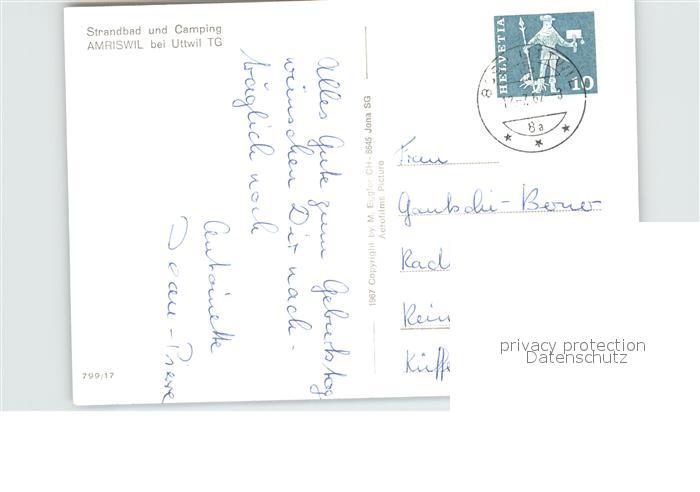 Strandbad und Camping
AMRISWIL bei Uttwil TG
Alles Gute zum Geburtstag
wünschen Dir nach-
träglich noch
Antoinette
Jean-Pierre
799/17
1967 Copyright by M. Eugler CH-8645 Jona SG
Aerofilms Picture
HELVETIA
10
8a
Frau
Gautschi-Berner
privacy protection
Datenschutz